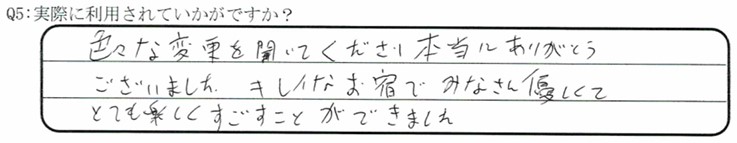 Q5:実際に利用されていかがですか？
色々な変更を聞いてくださり本当にありがとう
ございました キレイなお宿でみなさん優しくて
とても楽しくすごすことができました